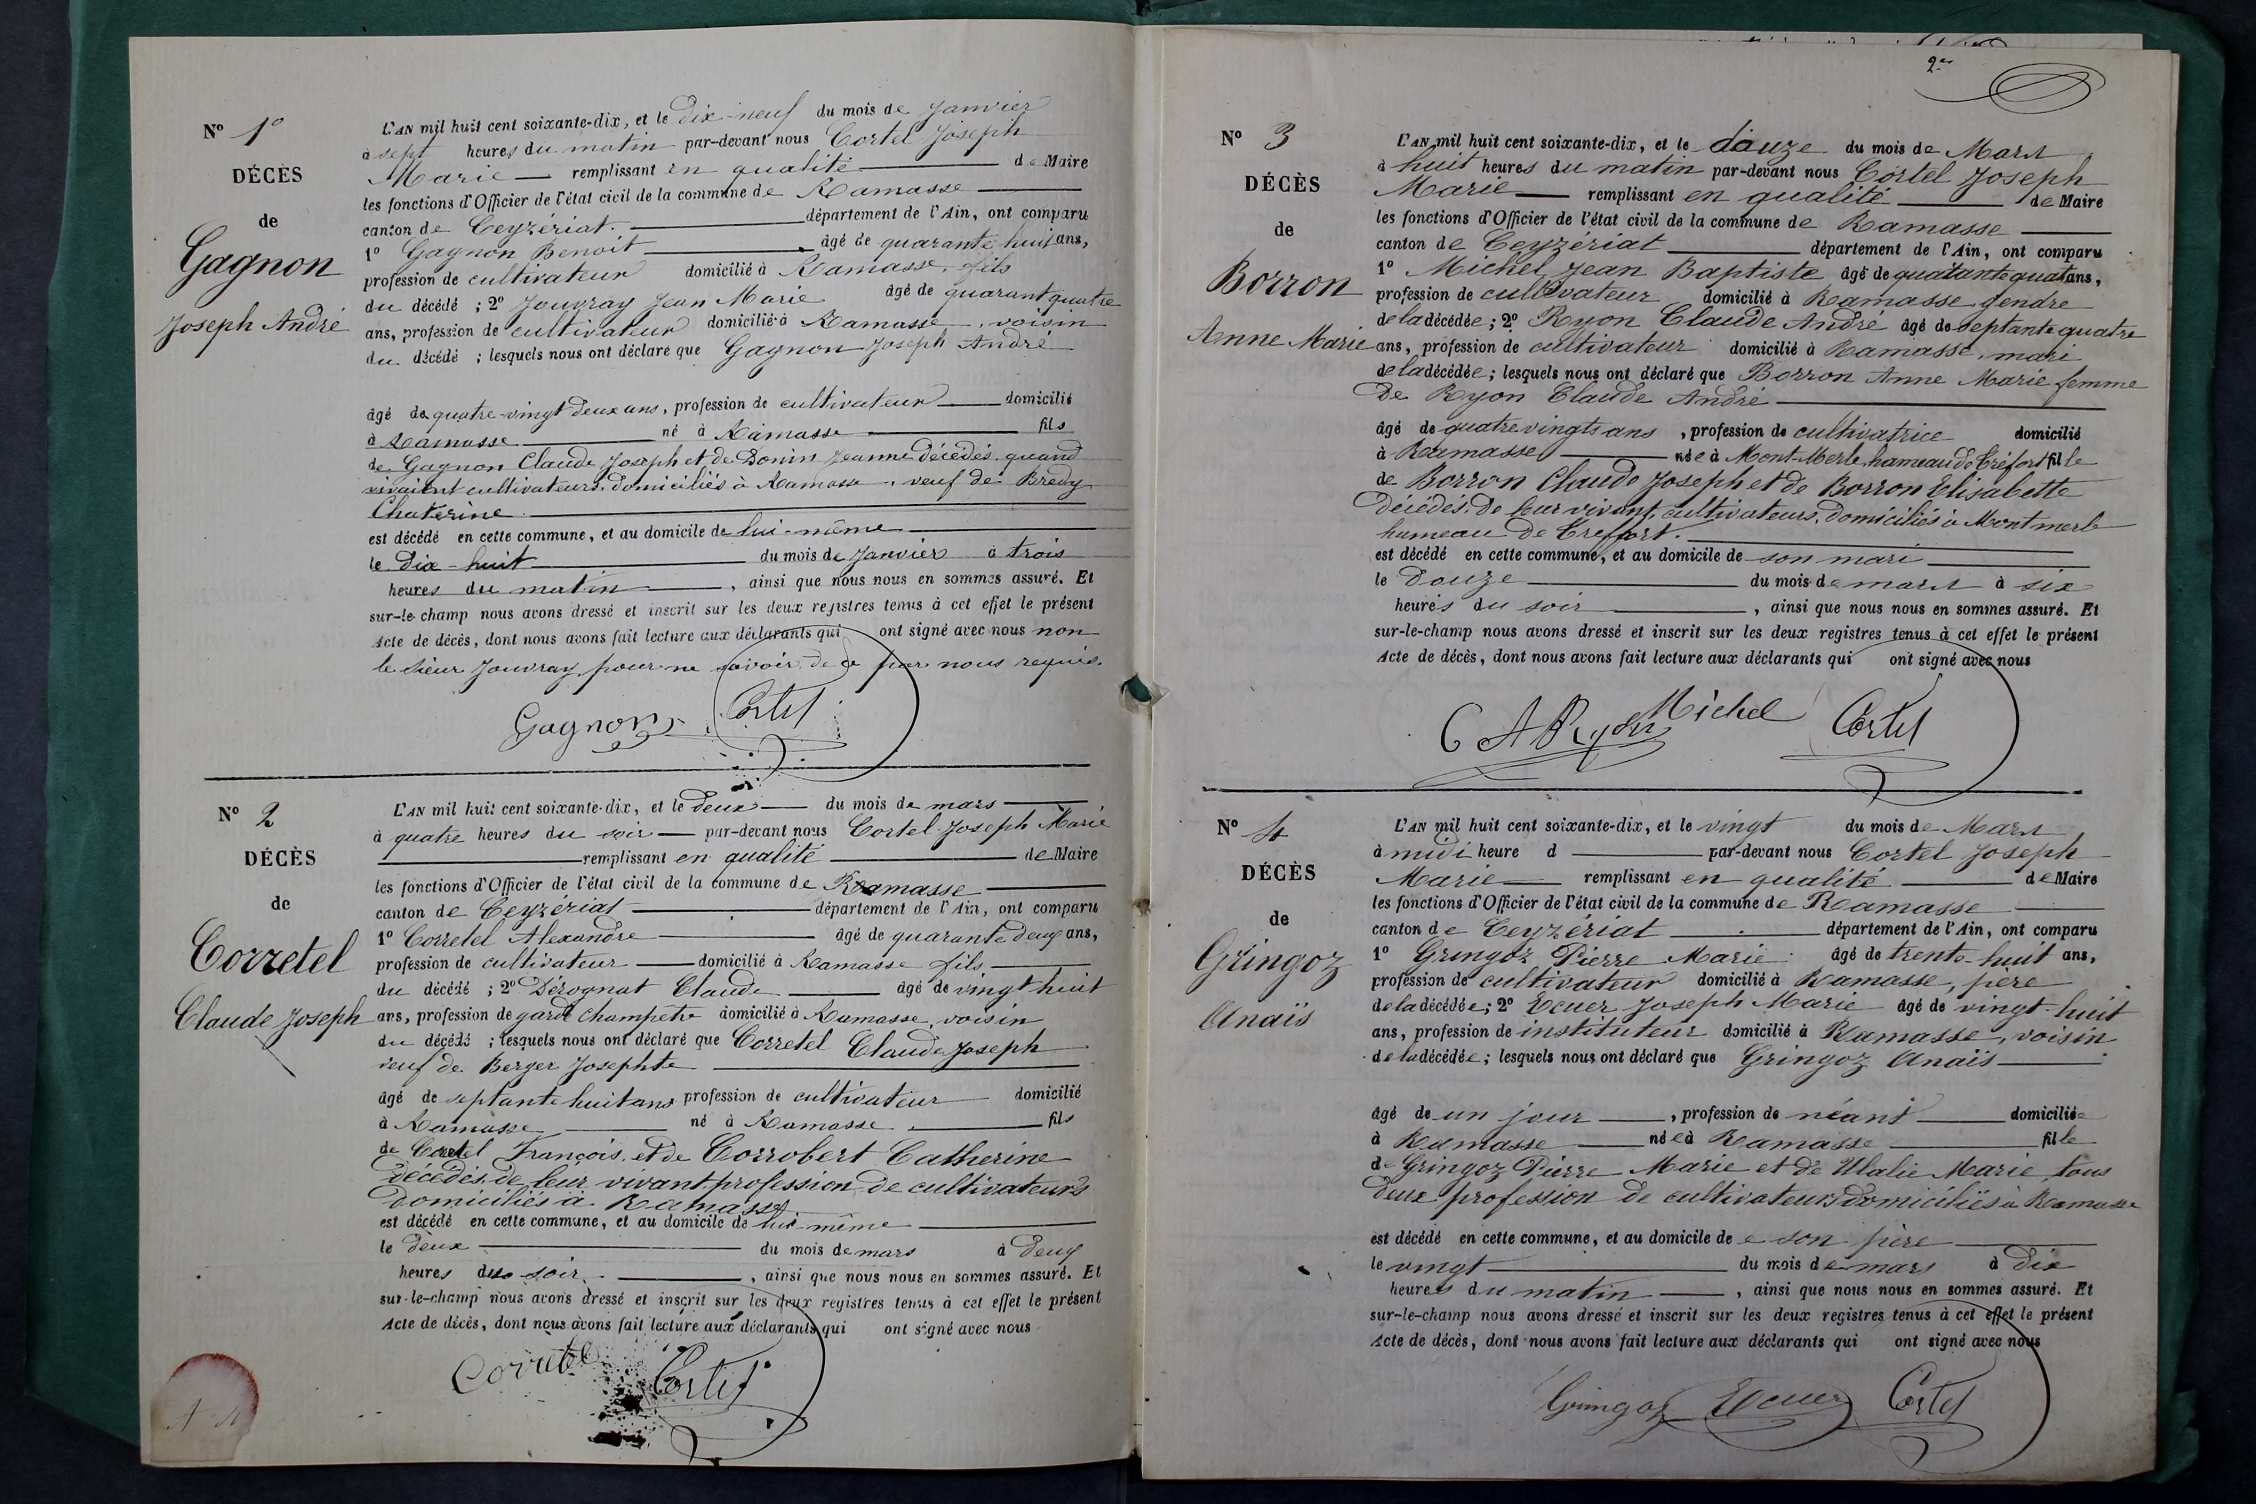 N° 1°
DÉCÈS
de
Gagnon
Joseph André
L'AN mil huit cent soixante-dix, et le dix-neuf du mois de Janvier
à sept heures du matin par-devant nous Cortel Joseph
Marie remplissant en qualité de Maire
les fonctions d'Officier de l'état civil de la commune de Ramasse
canton de Ceyzériat. département de l'Ain, ont comparu
1° Gagnon Benoit âgé de quarante huit ans,
profession de cultivateur domicilié à Ramasse, fils
du décédé ; 2° Jouvray Jean Marie âgé de quarant quatre
ans, profession de cultivateur domicilié à Ramasse, voisin
du décédé ; lesquels nous ont déclaré que Gagnon Joseph André
âgé de quatre-vingt deux ans, profession de cultivateur domicilié
à Ramasse né à Ramasse fils
de Gagnon Claude Joseph et de Donin Jeanne décédés quand
vivaient cultivateurs domiciliés à Ramasse, veuf de Bredy
Chaterine
est décédé en cette commune, et au domicile de lui-même
le Dix-huit du mois de Janvier à trois
heures du matin, ainsi que nous nous en sommes assuré. Et
sur-le-champ nous avons dressé et inscrit sur les deux registres tenus à cet effet le présent
Acte de décès, dont nous avons fait lecture aux déclarants qui ont signé avec nous non
le sieur Jouvray pour ne savoir de ce par nous requis.
Gagnon Cortel
N° 2
DÉCÈS
de
Corretel
Claude Joseph
L'AN mil huit cent soixante-dix, et le deux du mois de mars
à quatre heures du soir par-devant nous Cortel Joseph Marie
remplissant en qualité de Maire
les fonctions d'Officier de l'état civil de la commune de Ramasse
canton de Ceyzériat département de l'Ain, ont comparu
1° Corretel Alexandre âgé de quarante deux ans,
profession de cultivateur domicilié à Ramasse fils
du décédé ; 2° Dérognat Claude âgé de vingt huit
ans, profession de garde champêtre domicilié à Ramasse, voisin
du décédé ; lesquels nous ont déclaré que Corretel Claude Joseph
veuf de Berger Josephte
âgé de septante huit ans profession de cultivateur domicilié
à Ramasse né à Ramasse fils
de Corretel François et de Corrobert Catherine
décédés de leur vivant profession de cultivateurs
domiciliés à Ramasse
est décédé en cette commune, et au domicile de lui-même
le deux du mois de mars à deux
heures du soir, ainsi que nous nous en sommes assuré. Et
sur-le-champ nous avons dressé et inscrit sur les deux registres tenus à cet effet le présent
Acte de décès, dont nous avons fait lecture aux déclarants qui ont signé avec nous
Corretel Cortel
2
N° 3
DÉCÈS
de
Borron
Anne Marie
L'AN mil huit cent soixante-dix, et le douze du mois de Mars
à huit heures du matin par-devant nous Cortel Joseph
Marie remplissant en qualité de Maire
les fonctions d'Officier de l'état civil de la commune de Ramasse
canton de Ceyzériat département de l'Ain, ont comparu
1° Michel Jean Baptiste âgé de quarante quat ans,
profession de cultivateur domicilié à Ramasse gendre
de la décédée ; 2° Ryon Claude André âgé de septante quatre
ans, profession de cultivateur domicilié à Ramasse, mari
de la décédée ; lesquels nous ont déclaré que Borron Anne Marie femme
de Ryon Claude André
âgé de quatre vingts ans, profession de cultivatrice domicilié
à Ramasse née à Mont-Merle, hameau de Tréfort fille
de Borron Claude Joseph et de Borron Elisabette
décédés. De leur vivant, cultivateurs, domiciliés à Montmerle
hameau de Treffort.
est décédé en cette commune, et au domicile de son mari
le Douze du mois de mars à six
heures du soir, ainsi que nous nous en sommes assuré. Et
sur-le-champ nous avons dressé et inscrit sur les deux registres tenus à cet effet le présent
Acte de décès, dont nous avons fait lecture aux déclarants qui ont signé avec nous
C A Ryon Michel Cortel
N° 4
DÉCÈS
de
Gringoz
Anaïs
L'AN mil huit cent soixante-dix, et le vingt du mois de Mars
à midi heure d par-devant nous Cortel Joseph
Marie remplissant en qualité de Maire
les fonctions d'Officier de l'état civil de la commune de Ramasse
canton de Ceyzériat département de l'Ain, ont comparu
1° Gringoz Pierre Marie âgé de trente-huit ans,
profession de cultivateur domicilié à Ramasse, père
de la décédée ; 2° Ecuer Joseph Marie âgé de vingt-huit
ans, profession de instituteur domicilié à Ramasse, voisin
de la décédée ; lesquels nous ont déclaré que Gringoz Anaïs
âgé de un jour, profession de néant domiciliée
à Ramasse née à Ramasse fille
de Gringoz Pierre Marie et de Ulalie Marie tous
deux profession de cultivateurs domiciliés à Ramasse
est décédé en cette commune, et au domicile de son père
le vingt du mois de mars à dix
heures du matin, ainsi que nous nous en sommes assuré. Et
sur-le-champ nous avons dressé et inscrit sur les deux registres tenus à cet effet le présent
Acte de décès, dont nous avons fait lecture aux déclarants qui ont signé avec nous
Gringoz Ecuer Cortel